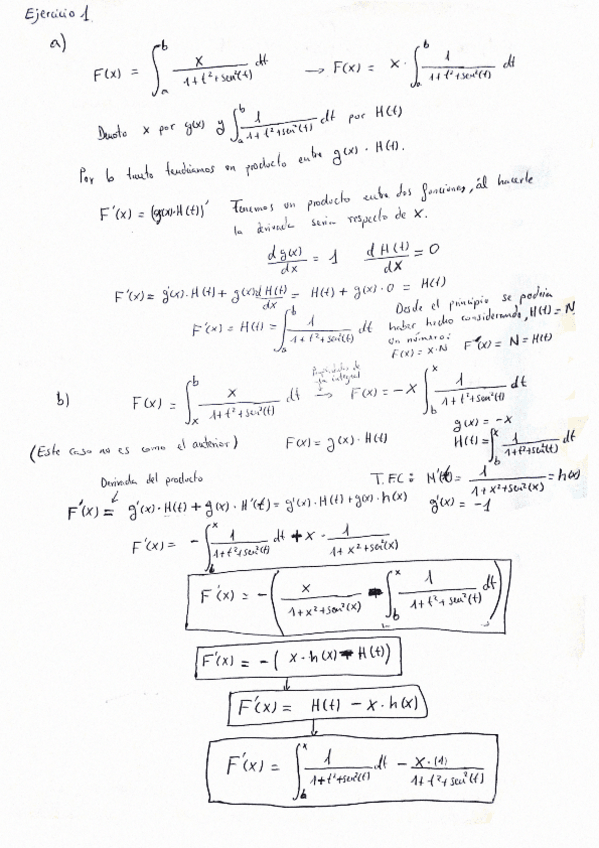 Ejercicio 1
a)
F(x) = ∫_a^b x/(1+t²+sen²(t)) dt → F(x) = x · ∫_a^b 1/(1+t²+sen²(t)) dt
Denoto x por g(x) y ∫_a^b 1/(1+t²+sen²(t)) dt por H(t)
Por lo tanto tendríamos un producto entre g(x) · H(t).
F'(x) = (g(x)·H(t))' Tenemos un producto entre dos funciones, al hacerle
la derivada sería respecto de x.
dg(x)/dx = 1 dH(t)/dx = 0
F'(x) = g'(x)·H(t) + g(x) dH(t)/dx = H(t) + g(x)·0 = H(t)
F'(x) = H(t) = ∫_a^b 1/(1+t²+sen²(t)) dt
Desde el principio se podría
haber hecho considerando, H(t) = N
un número:
F(x) = x·N F'(x) = N = H(t)
b) F(x) = ∫_x^b x/(1+t²+sen²(t)) dt → F(x) = -x ∫_b^x 1/(1+t²+sen²(t)) dt
Propiedades de la integral
(Este caso no es como el anterior) F(x) = g(x) · H(t)
g(x) = -x
H(t) = ∫_b^x 1/(1+t²+sen²(t)) dt
Derivada del producto
T.F.C: H'(t) = 1/(1+x²+sen²(x)) = h(x)
F'(x) = g'(x)·H(t) + g(x)·H'(t) = g'(x)·H(t) + g(x)·h(x) g'(x) = -1
F'(x) = -∫_b^x 1/(1+t²+sen²(t)) dt + x · 1/(1+x²+sen²(x))
F'(x) = -( x/(1+x²+sen²(x)) - ∫_b^x 1/(1+t²+sen²(t)) dt )
F'(x) = -( x·h(x) - H(t))
F'(x) = H(t) - x·h(x)
F'(x) = ∫_b^x 1/(1+t²+sen²(t)) dt - x·(1)/(1+t²+sen²(t))